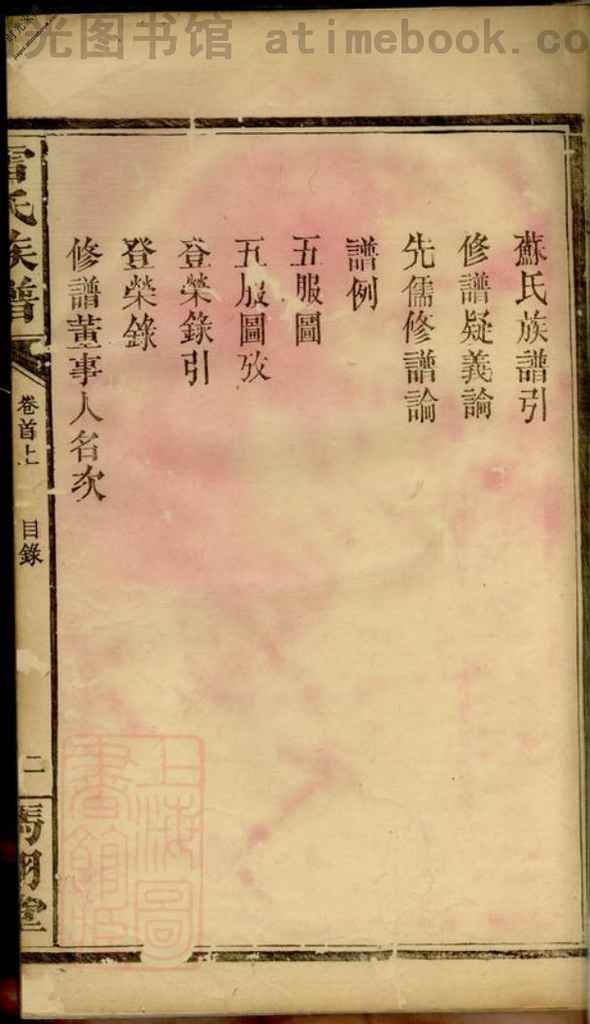 光图书馆 atimebook.co
蘇氏族譜引
修譜疑義論
先儒修譜論
譜例
五服圖
五服圖攷
登榮錄引
登榮錄
修譜董事人名次
雷氏族譜
卷首上
目錄
二
馮翊堂
上海圖書館藏